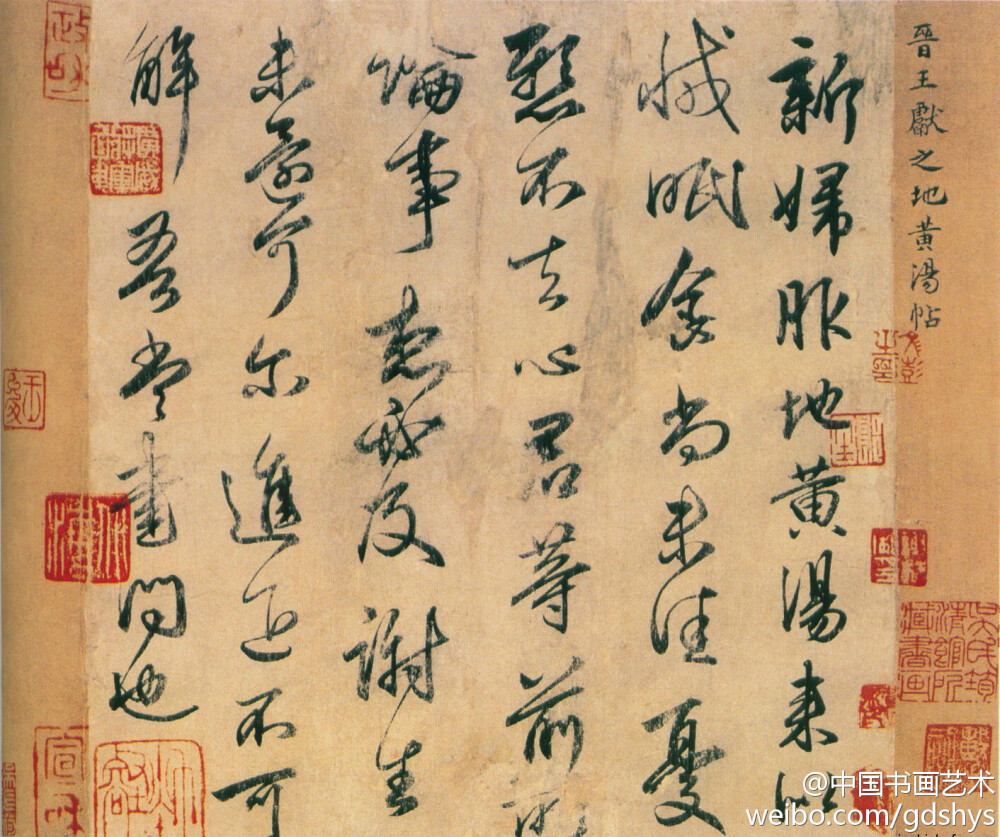 晉王獻之地黃湯帖
新婦服地黃湯來似
減眠食尚未佳憂
懸不去心君等前所
論事想必及謝生
未還可爾進退不可
解吾當書問也
政和
宣和
@中国书画艺术
weibo.com/gdshys